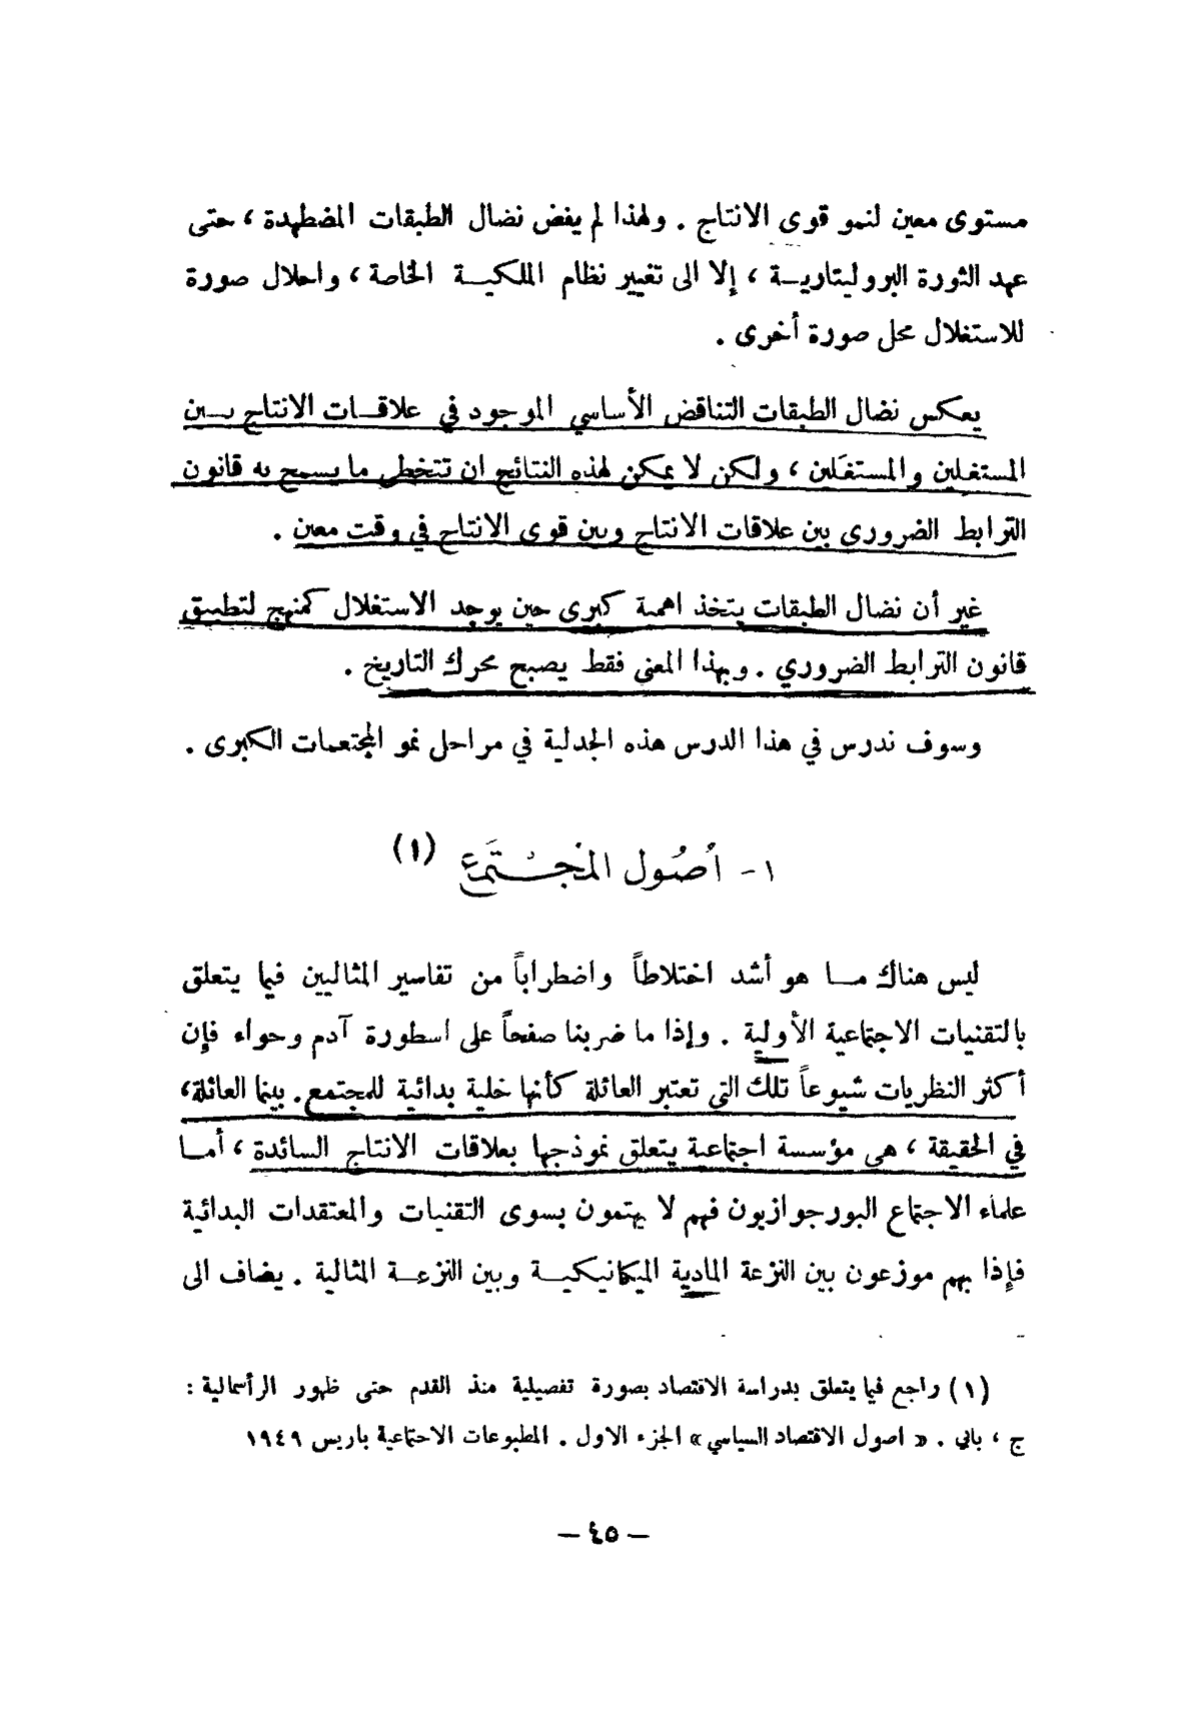 مستوى معين لنمو قوى الانتاج . ولهذا لم يفض نضال الطبقات المضطهدة ، حتى
عهد الثورة البروليتارية ، إلا الى تغيير نظام الملكية الخاصة ، واحلال صورة
للاستغلال محل صورة أخرى .
يعكس نضال الطبقات التناقض الأساسي الموجود في علاقات الانتاج بين
المستغلين والمستغَلين ، ولكن لا يمكن لهذه النتائج ان تتخطى ما يسمح به قانون
الترابط الضروري بين علاقات الانتاج وبين قوى الانتاج في وقت معين .
غير أن نضال الطبقات يتخذ اهمية كبرى حين يوجد الاستغلال كمنهج لتطبيق
قانون الترابط الضروري . وبهذا المعنى فقط يصبح محرك التاريخ .
وسوف ندرس في هذا الدرس هذه الجدلية في مراحل نمو المجتمعات الكبرى .
١ - اُصُول المجْتَمَع (١)
ليس هناك ما هو أشد اختلاطاً واضطراباً من تفاسير المثاليين فيما يتعلق
بالتقنيات الاجتماعية الأولية . وإذا ما ضربنا صفحاً على اسطورة آدم وحواء فإن
أكثر النظريات شيوعاً تلك التي تعتبر العائلة كأنها خلية بدائية للمجتمع . بينما العائلة ،
في الحقيقة ، هي مؤسسة اجتماعية يتعلق نموذجها بعلاقات الانتاج السائدة ، أما
علماء الاجتماع البورجوازيون فهم لا يهتمون بسوى التقنيات والمعتقدات البدائية
فإذا بهم موزعون بين النزعة المادية الميكانيكية وبين النزعة المثالية . يضاف الى
(١) راجع فيما يتعلق بدراسة الاقتصاد بصورة تفصيلية منذ القدم حتى ظهور الرأسمالية :
ج ، بابي . « اصول الاقتصاد السياسي » الجزء الاول . المطبوعات الاجتماعية باريس ١٩٤٩
— ٤٥ —